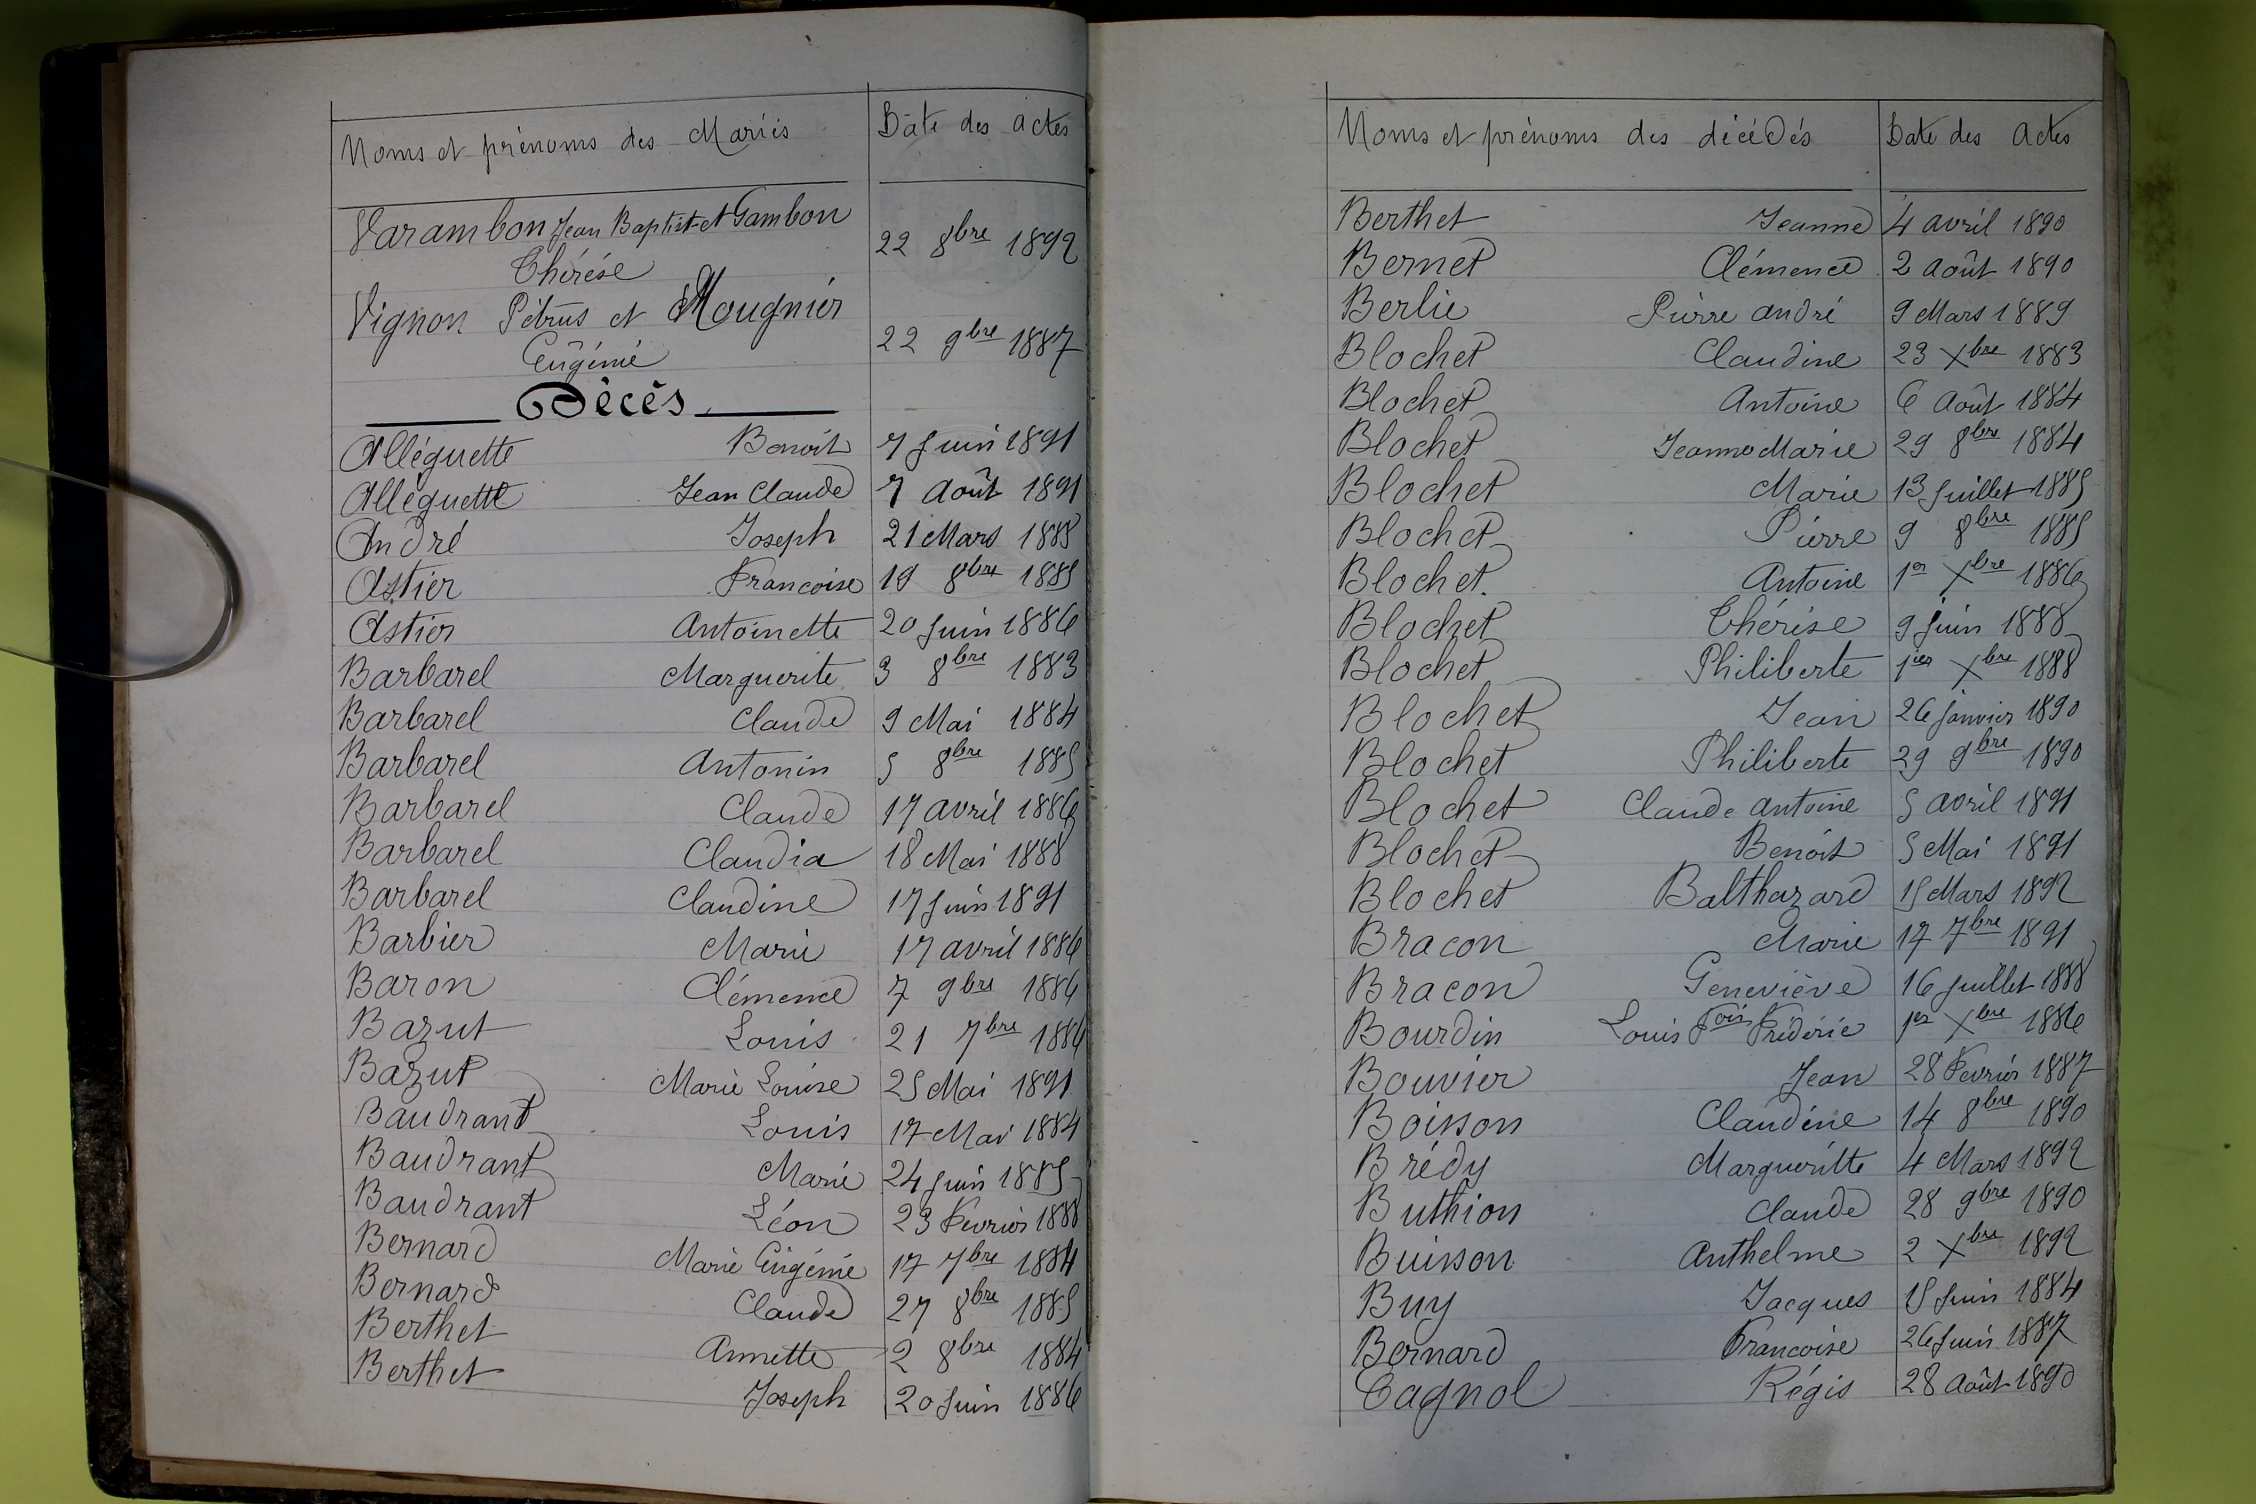 Noms et prénoms des Mariés Date des actes
Varambon Jean Baptist et Gambon
Thérése 22 8bre 1892
Vignon Pétrus et Mougnier
Eugénie 22 9bre 1887
Décès
Alléguette Benoît 7 Juin 1891
Alléguette Jean Claude 7 Août 1891
André Joseph 21 Mars 1888
Astier Francoise 19 8bre 1885
Astier Antoinette 20 Juin 1886
Barbarel Marguerite 3 8bre 1883
Barbarel Claude 9 Mai 1884
Barbarel Antonin 5 8bre 1885
Barbarel Claude 17 avril 1886
Barbarel Claudia 18 Mai 1888
Barbarel Claudine 17 Juin 1891
Barbier Marie 17 avril 1886
Baron Clémence 7 9bre 1886
Bazut Louis 21 7bre 1886
Bazut Marie Louise 25 Mai 1891
Baudrant Louis 17 Mai 1884
Baudrant Marie 24 Juin 1885
Baudrant Léon 23 Février 1888
Bernard Marie Eugénie 17 7bre 1884
Bernard Claude 27 8bre 1885
Berthet Annette 2 8bre 1884
Berthet Joseph 20 Juin 1886
Noms et prénoms des décédés Date des Actes
Berthet Jeanne 4 avril 1890
Bernet Clémence 2 août 1890
Berlie Pierre André 9 Mars 1889
Blochet Claudine 23 Xbre 1883
Blochet Antoine 6 Août 1884
Blochet Jeanne Marie 29 8bre 1884
Blochet Marie 13 Juillet 1885
Blochet Pierre 9 8bre 1885
Blochet. Antoine 1er Xbre 1886
Blochet Thérèse 9 Juin 1888
Blochet Philiberte 1ier Xbre 1888
Blochet Jean 26 Janvier 1890
Blochet Philiberte 29 9bre 1890
Blochet Claude Antoine 5 avril 1891
Blochet Benoît 5 Mai 1891
Blochet Balthazard 15 Mars 1892
Bracon Marie 17 7bre 1891
Bracon Geneviève 16 Juillet 1888
Bourdin Louis Fois Frédéric 1er Xbre 1886
Bouvier Jean 28 Fevrier 1887
Boisson Claudine 14 8bre 1890
Brédy Margueritte 4 Mars 1892
Buthion Claude 28 9bre 1890
Buisson Anthelme 2 Xbre 1892
Buy Jacques 15 Juin 1884
Bernard Francoise 26 Juin 1887
Cagnol Régis 28 Août 1890